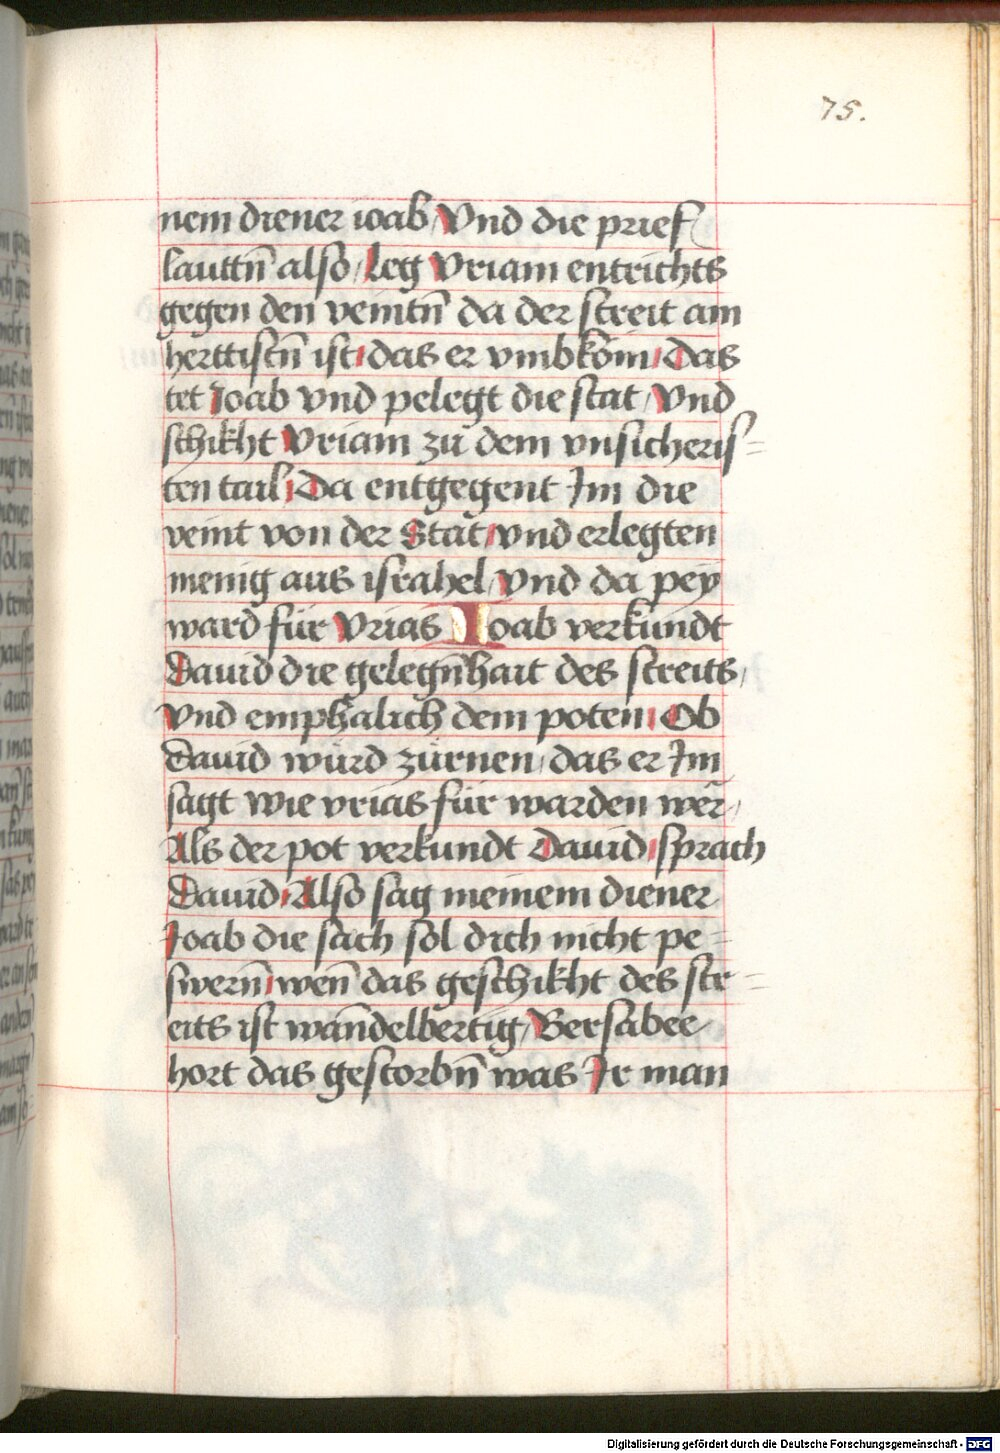 75.
nem diener ioab / Vnd die prief
lauttn̄ also / Leg Vriam entrichts
gegen den veintn̄ da der streit am
herttistn̄ ist / das er vmbkom / Das
tet Joab vnd pelegt die stat / Vnd
schikht Vriam zu dem vnsicheris=
ten tail / Da entgegent Im die
veint von der Stat / vnd erlegten
menig aus israhel / vnd da pey
ward für Vrias Joab verkündt
Dauid die gelegn̄hait des streits /
Vnd emphalich dem poten / Ob
Dauid würd zürnen / das er Im
sagt wie vrias für warden wēr /
Als der pot verkundt Dauid / sprach
Dauid / Also sag meinem diener
Joab die sach sol dich nicht pe=
swern̄ / wen̄ das geschikht des str=
eits ist wan̄delbertig / Bersabee
hort das gestorbn̄ was Ir man
Digitalisierung gefördert durch die Deutsche Forschungsgemeinschaft - DFG